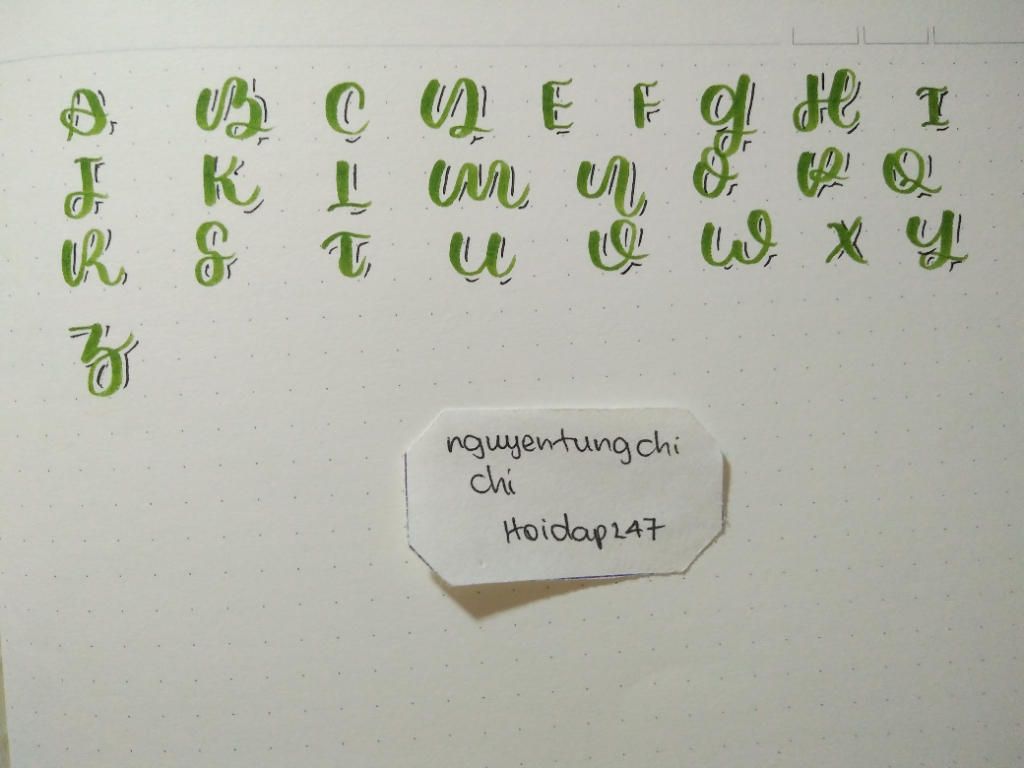 A B C D E F G H I
J K L M N O P Q
R S T U V W X Y
Z
nguyentungchi
chi
Hoidap247